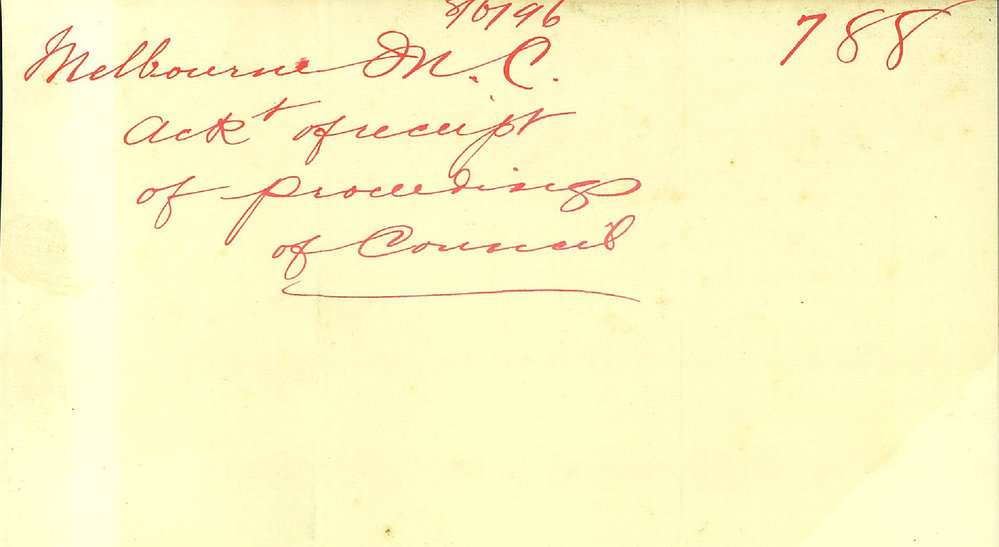 8/6/96 788
Melbourne M.C.
Ackt of receipt
of proceedings
of Council